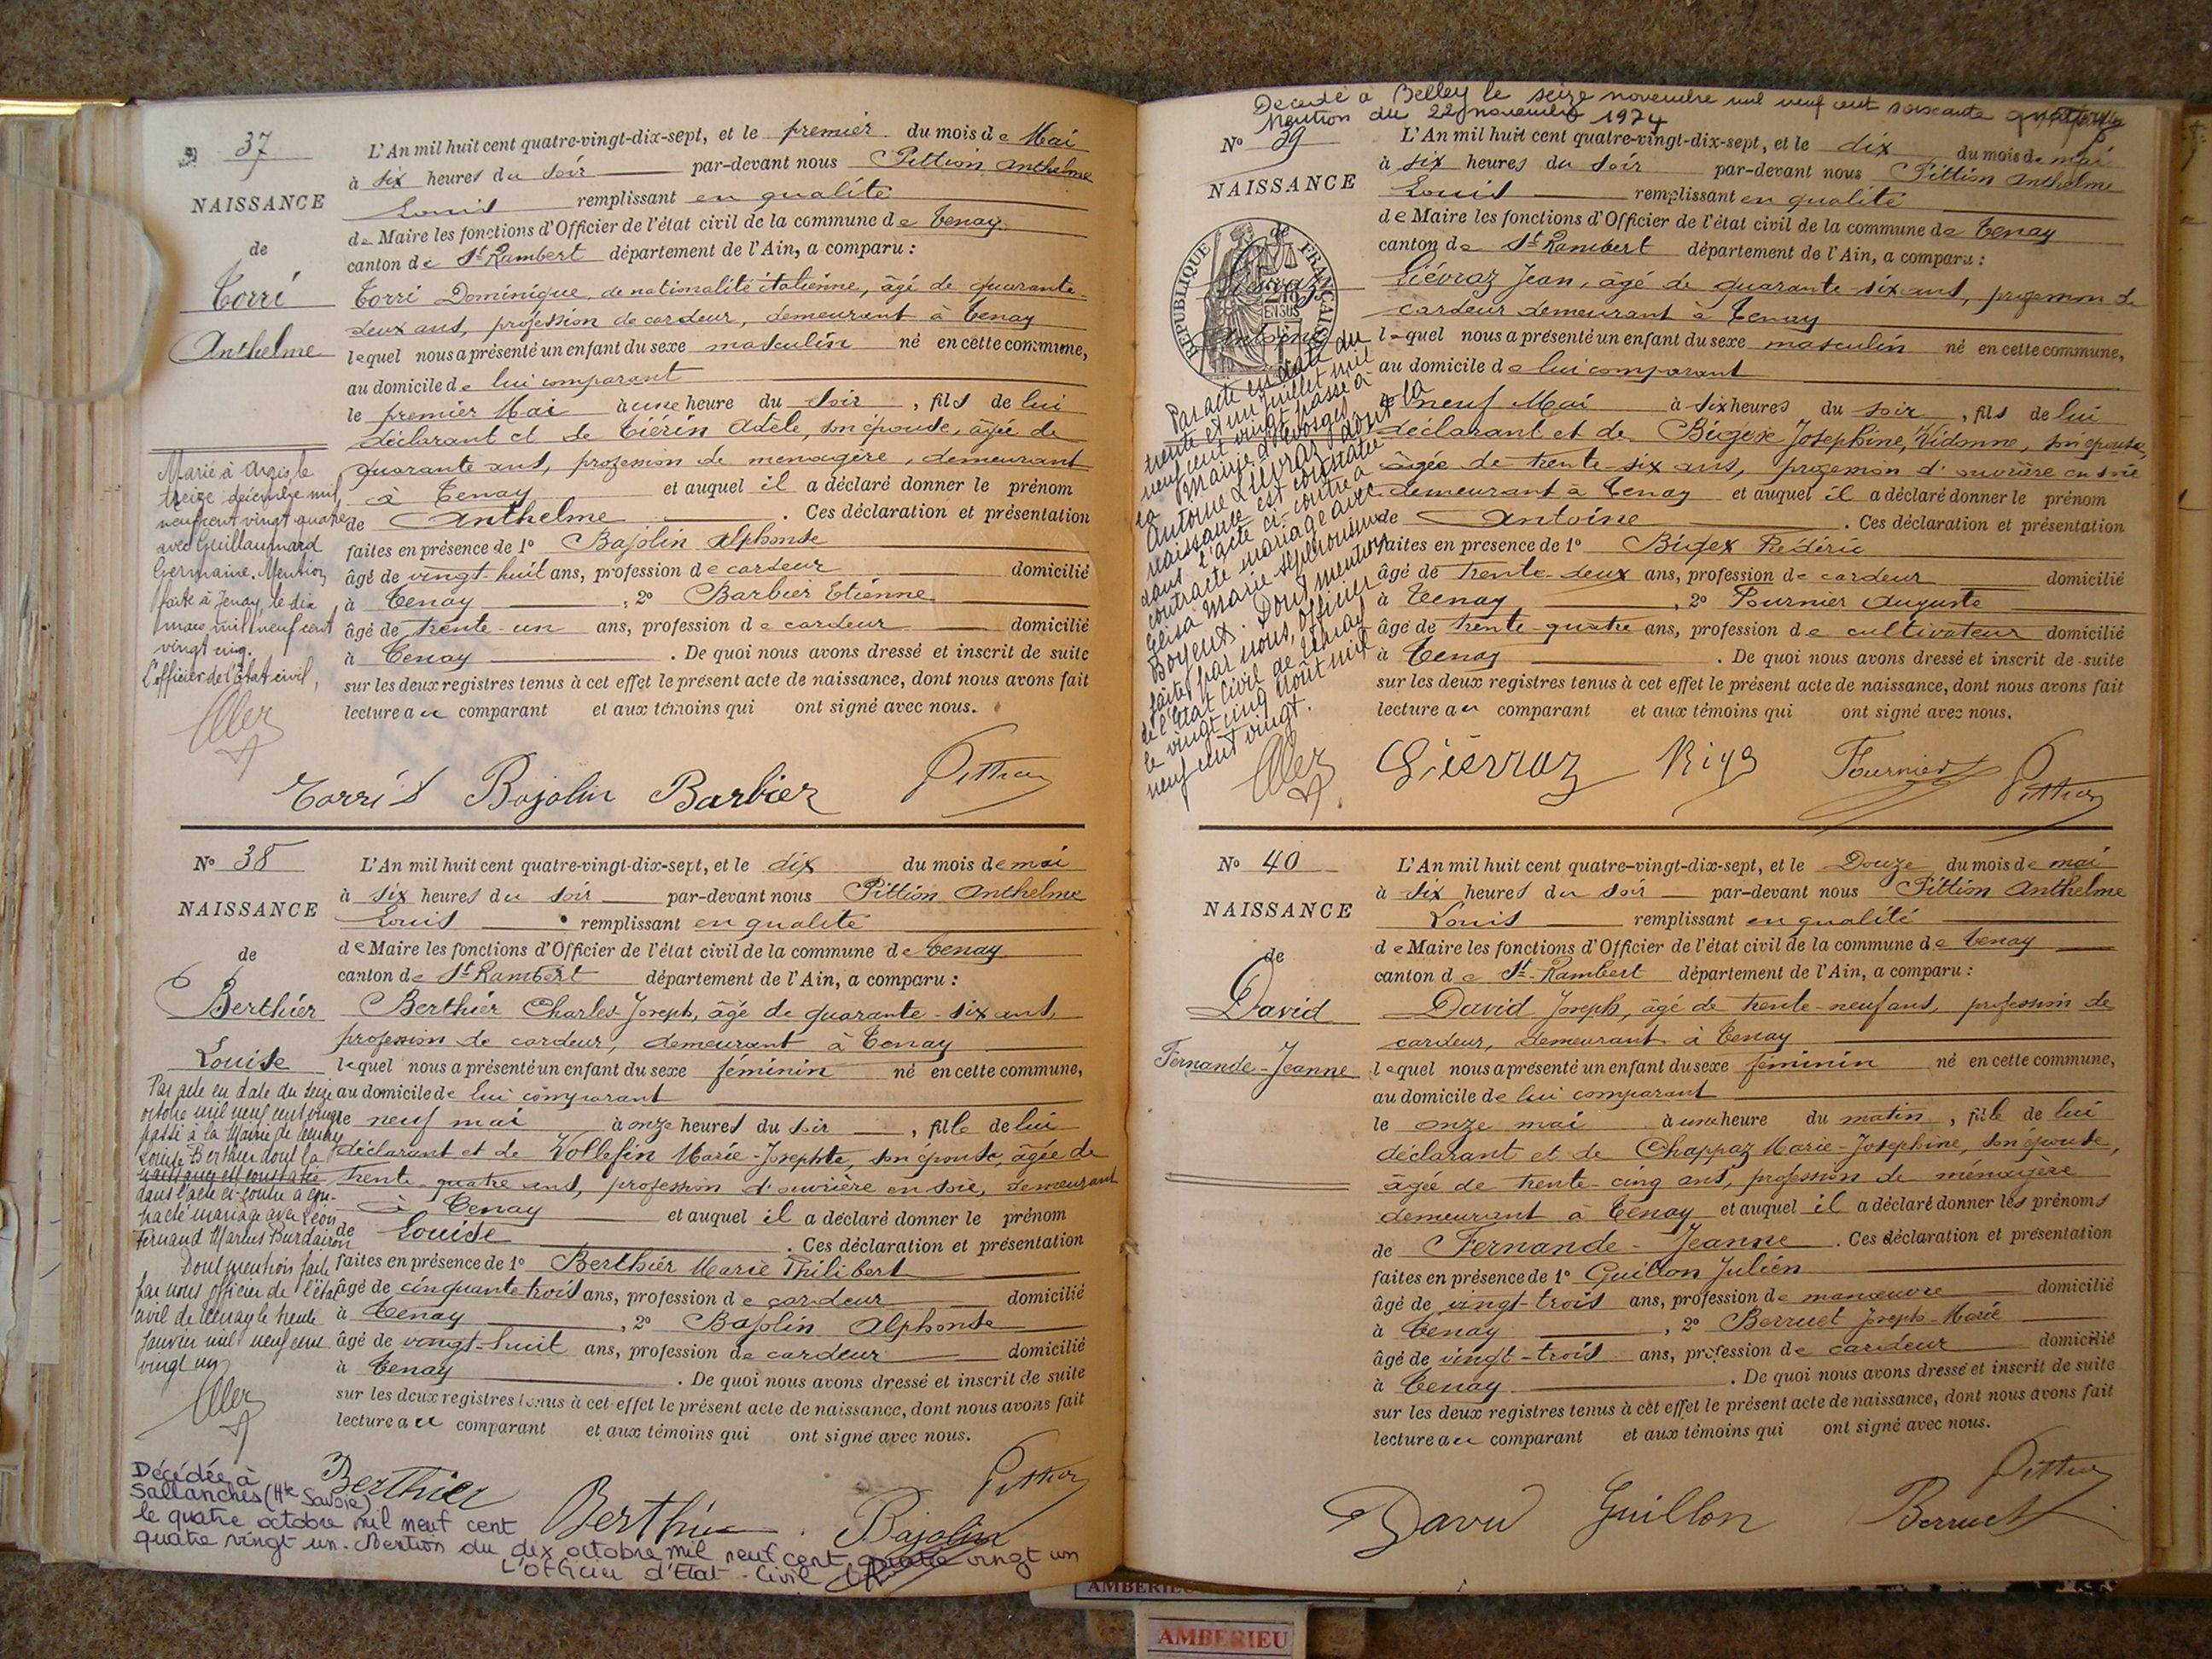 37
NAISSANCE
de
Torri
Anthelme
L'An mil huit cent quatre-vingt-dix-sept, et le premier du mois de Mai
à six heures du soir par-devant nous Pittion Anthelme
Louis remplissant en qualité
de Maire les fonctions d'Officier de l'état civil de la commune de Tenay
canton de St Rambert département de l'Ain, a comparu :
Torri Dominique, de nationalité italienne, âgé de quarante-
deux ans, profession de cardeur, demeurant à Tenay
lequel nous a présenté un enfant du sexe masculin né en cette commune,
au domicile de lui comparant
le premier Mai à une heure du soir, fils de lui
déclarant et de Tiérin Adèle, son épouse, âgée de
quarante ans, profession de ménagère, demeurant
à Tenay et auquel il a déclaré donner le prénom
de Anthelme. Ces déclaration et présentation
faites en présence de 1° Bajolin Alphonse
âgé de vingt-huit ans, profession de cardeur domicilié
à Tenay, 2° Barbier Etienne
âgé de trente-un ans, profession de cardeur domicilié
à Tenay. De quoi nous avons dressé et inscrit de suite
sur les deux registres tenus à cet effet le présent acte de naissance, dont nous avons fait
lecture au comparant et aux témoins qui ont signé avec nous.
Marié à Argis, le
treize décembre mil
neuf cent vingt quatre
avec Guillaumard
Germaine. Mention
faite à Tenay, le dix
mars mil neuf cent
vingt cinq.
L'officier de l'état civil,
Bajolin Barbier Pittion
N° 38
NAISSANCE
de
Berthier
Louise
L'An mil huit cent quatre-vingt-dix-sept, et le dix du mois de mai
à six heures du soir par-devant nous Pittion Anthelme
Louis remplissant en qualité
de Maire les fonctions d'Officier de l'état civil de la commune de Tenay
canton de St Rambert département de l'Ain, a comparu :
Berthier Charles Joseph, âgé de quarante-six ans,
profession de cardeur, demeurant à Tenay
lequel nous a présenté un enfant du sexe féminin né en cette commune,
au domicile de lui comparant
le neuf mai à onze heures du soir, fille de lui
déclarant et de Vollefin Marie-Josephte, son épouse, âgée de
trente-quatre ans, profession d'ouvrière en soie, demeurant
à Tenay et auquel il a déclaré donner le prénom
de Louise. Ces déclaration et présentation
faites en présence de 1° Berthier Marie Philibert
âgé de cinquante trois ans, profession de cardeur domicilié
à Tenay, 2° Bajolin Alphonse
âgé de vingt-huit ans, profession de cardeur domicilié
à Tenay. De quoi nous avons dressé et inscrit de suite
sur les deux registres tenus à cet effet le présent acte de naissance, dont nous avons fait
lecture au comparant et aux témoins qui ont signé avec nous.
Par acte en date du seize
octobre mil neuf cent vingt
passé à la Mairie de Tenay
Louise Berthier dont la
naissance est constatée
dans l'acte ci-contre a con-
tracté mariage avec Léon
Fernand Marius Burdairon
Dont mention faite
par nous officier de l'état
civil de Tenay le trente
janvier mil neuf cent
vingt un
Berthier Berthier Bajolin Pittion
Décédée à
Sallanches (Hte Savoie)
le quatre octobre mil neuf cent
quatre vingt un. Mention du dix octobre mil neuf cent quatre vingt un
L'Officier d'Etat-Civil
Décédé à Belley le seize novembre mil neuf cent soixante quatorze
Mention du 22 novembre 1974
N° 39
NAISSANCE
de
Liévraz
Antoine
REPUBLIQUE FRANÇAISE
L'An mil huit cent quatre-vingt-dix-sept, et le dix du mois de mai
à six heures du soir par-devant nous Pittion Anthelme
Louis remplissant en qualité
de Maire les fonctions d'Officier de l'état civil de la commune de Tenay
canton de St Rambert département de l'Ain, a comparu :
Liévraz Jean, âgé de quarante-six ans, profession de
cardeur demeurant à Tenay
lequel nous a présenté un enfant du sexe masculin né en cette commune,
au domicile de lui comparant
le neuf Mai à six heures du soir, fils de lui
déclarant et de Bugex Josephine, Vidonne, son épouse,
âgée de trente-six ans, profession d'ouvrière en soie
demeurant à Tenay et auquel il a déclaré donner le prénom
de Antoine. Ces déclaration et présentation
faites en présence de 1° Bugex Frédéric
âgé de trente-deux ans, profession de cardeur domicilié
à Tenay, 2° Fournier Auguste
âgé de trente-quatre ans, profession de cultivateur domicilié
à Tenay. De quoi nous avons dressé et inscrit de suite
sur les deux registres tenus à cet effet le présent acte de naissance, dont nous avons fait
lecture au comparant et aux témoins qui ont signé avec nous.
Par acte en date du
trente et un juillet mil
neuf cent vingt passé à
la Mairie d'Evosges
Antoine Liévraz dont la
naissance est constatée
dans l'acte ci-contre a
contracté mariage avec
Marie
Dont mention
faite par nous, officier
de l'état civil de Tenay
le vingt cinq août mil
neuf cent vingt.
Liévraz Fournier Pittion
N° 40
NAISSANCE
de
David
Fernande-Jeanne
L'An mil huit cent quatre-vingt-dix-sept, et le Douze du mois de mai
à six heures du soir par-devant nous Pittion Anthelme
Louis remplissant en qualité
de Maire les fonctions d'Officier de l'état civil de la commune de Tenay
canton de St-Rambert département de l'Ain, a comparu :
David Joseph, âgé de trente-neuf ans, profession de
cardeur, demeurant à Tenay
lequel nous a présenté un enfant du sexe féminin né en cette commune,
au domicile de lui comparant
le onze mai à une heure du matin, fille de lui
déclarant et de Chappaz Marie-Josephine, son épouse,
âgée de trente-cinq ans, profession de ménagère
demeurant à Tenay et auquel il a déclaré donner les prénoms
de Fernande-Jeanne. Ces déclaration et présentation
faites en présence de 1° Guillon Julien
âgé de vingt-trois ans, profession de manœuvre domicilié
à Tenay, 2° Berruet Joseph-Marie
âgé de vingt-trois ans, profession de cardeur domicilié
à Tenay. De quoi nous avons dressé et inscrit de suite
sur les deux registres tenus à cet effet le présent acte de naissance, dont nous avons fait
lecture au comparant et aux témoins qui ont signé avec nous.
David Guillon Berruet Pittion
AMBERIEU
AMBERIEU